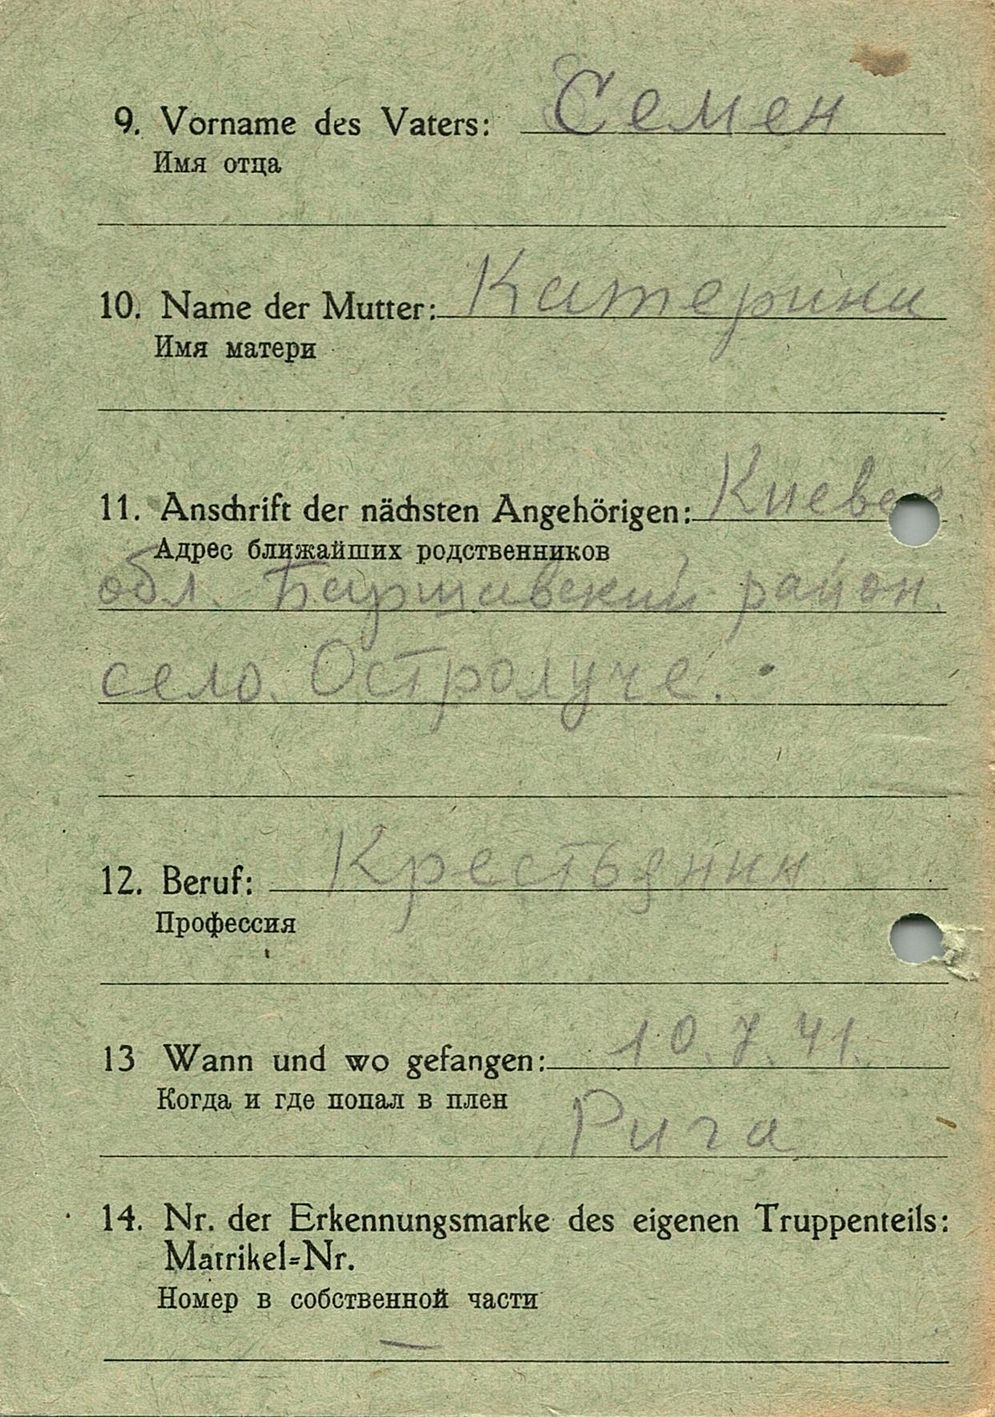 9. Vorname des Vaters: Семен
Имя отца
10. Name der Mutter: Катерина
Имя матери
11. Anschrift der nächsten Angehörigen: Киевск
Адрес ближайших родственников
обл. Баришавский район.
село. Остролуче.
12. Beruf: Крестьянин
Профессия
13 Wann und wo gefangen: 10.7.41.
Когда и где попал в плен
Рига
14. Nr. der Erkennungsmarke des eigenen Truppenteils:
Matrikel=Nr.
Номер в собственной части
—